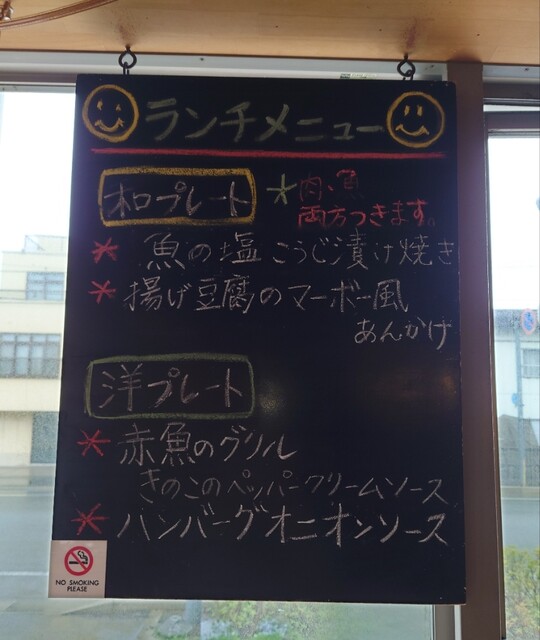 ランチメニュー
和プレート
*肉、魚
両方つきます。
* 魚の塩こうじ漬け焼き
* 揚げ豆腐のマーボー風
あんかけ
洋プレート
* 赤魚のグリル
きのこのペッパークリームソース
* ハンバーグオニオンソース
NO SMOKING
PLEASE